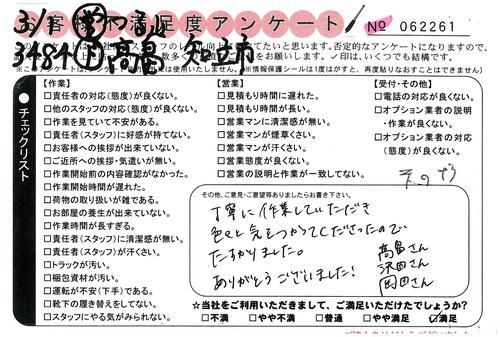 お客様不満足度アンケート
№ 062261
3/1
3484
知立市
【作業】
□責任者の対応(態度)が良くない。
□他のスタッフの対応(態度)が良くない。
□作業を見ていて不安がある。
□責任者(スタッフ)に好感が持てない。
□お客様への挨拶が出来ていない。
□ご近所への挨拶・気遣いが無い。
□作業開始前の内容確認がなかった。
□作業開始時間が遅れた。
□荷物の取り扱いが雑である。
□お部屋の養生が出来ていない。
□作業時間が長すぎる。
□責任者(スタッフ)に清潔感が無い。
□責任者(スタッフ)が汗くさい。
□トラックが汚い。
□梱包資材が汚い。
□運転が不安(下手)である。
□靴下の履き替えをしてない。
□スタッフにやる気がみられない。
【営業】
□見積もり時間に遅れた。
□見積もり時間が長い。
□営業マンに清潔感が無い。
□営業マンが煙草くさい。
□営業マンが汗くさい。
□営業態度が良くない。
□営業の説明と作業が一致してない。
【受付・その他】
□電話の対応が良くない。
□オプション業者の説明
・作業が良くない。
□オプション業者の対応
(態度)が良くない。
● チェックリスト
その他、ご意見・ご要望等ありましたらお書き下さい。
丁寧に作業していただき
色々と気をつかってくださったので
たすかりました。
ありがとうございました!
高畠さん
沢田さん
岡田さん
☆当社をご利用いただきまして、ご満足いただけたでしょうか?
□不満 □やや不満 □普通 □やや満足 ☑満足